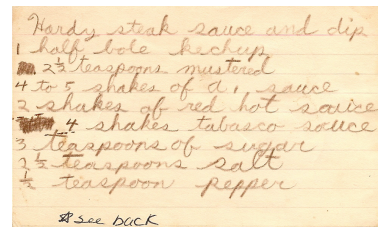 Hardy steak sauce and dip
1 half bole kechup
2 1/2 teaspoons mustered
4 to 5 shakes of a, sauce
2 shakes of red hot sauice
4 shakes tabasco souce
3 teaspoons of sugar
2 1/2 teaspoons salt
1/2 teaspoon pepper
see back